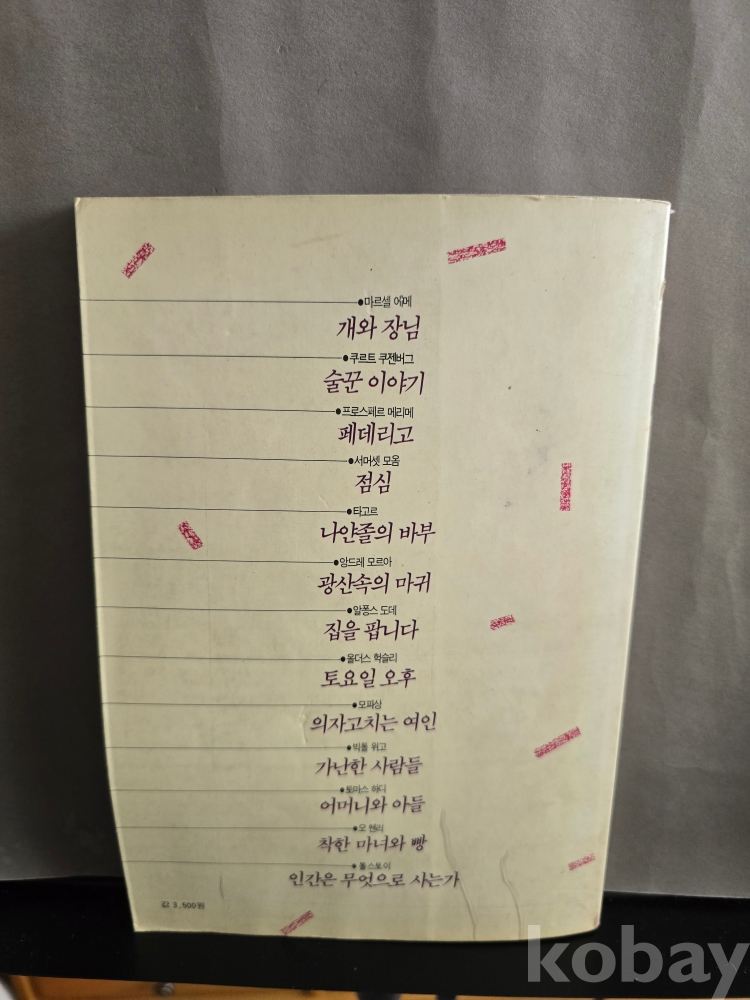 ●마르셀 에메
개와 장님
●쿠르트 쿠젠버그
술꾼 이야기
●프로스페르 메리메
페데리고
●서머셋 모옴
점심
●타고르
나얀졸의 바부
●앙드레 모르아
광산속의 마귀
●알퐁스 도데
집을 팝니다
●올더스 헉슬리
토요일 오후
●모파상
의자고치는 여인
●빅톨 위고
가난한 사람들
●토마스 하디
어머니와 아들
●오 헨리
착한 마녀와 빵
●톨스토이
인간은 무엇으로 사는가
값 3,500원
kobay